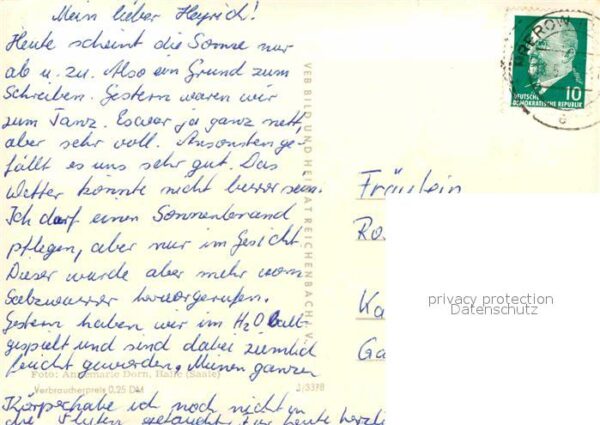 Mein lieber Heyrich!
Heute scheint die Sonne nur
ab u. zu. Also ein Grund zum
Schreiben. Gestern waren wir
zum Tanz. Es war ja ganz nett,
aber sehr voll. Ansonsten ge-
fällt es uns sehr gut. Das
Wetter könnte nicht besser sein.
Ich darf einen Sonnenbrand
pflegen, aber nur im Gesicht.
Dieser wurde aber mehr vom
Salzwasser hervorgerufen.
Gestern haben wir im H2O Ball
gespielt und sind dabei ziemlich
feucht geworden. Meinen ganzen
Foto: Annemarie Dorn, Halle (Saale)
Verbraucherpreis 0,25 DM
J/3378
Körper habe ich noch nicht in
die Fluten getaucht. Für heute herzl
VEB BILD UND HEIMAT REICHENBACH
PREROW
DEUTSCHE
DEMOKRATISCHE REPUBLIK
10
Fräulein
Ro
Ka
Ga
privacy protection
Datenschutz